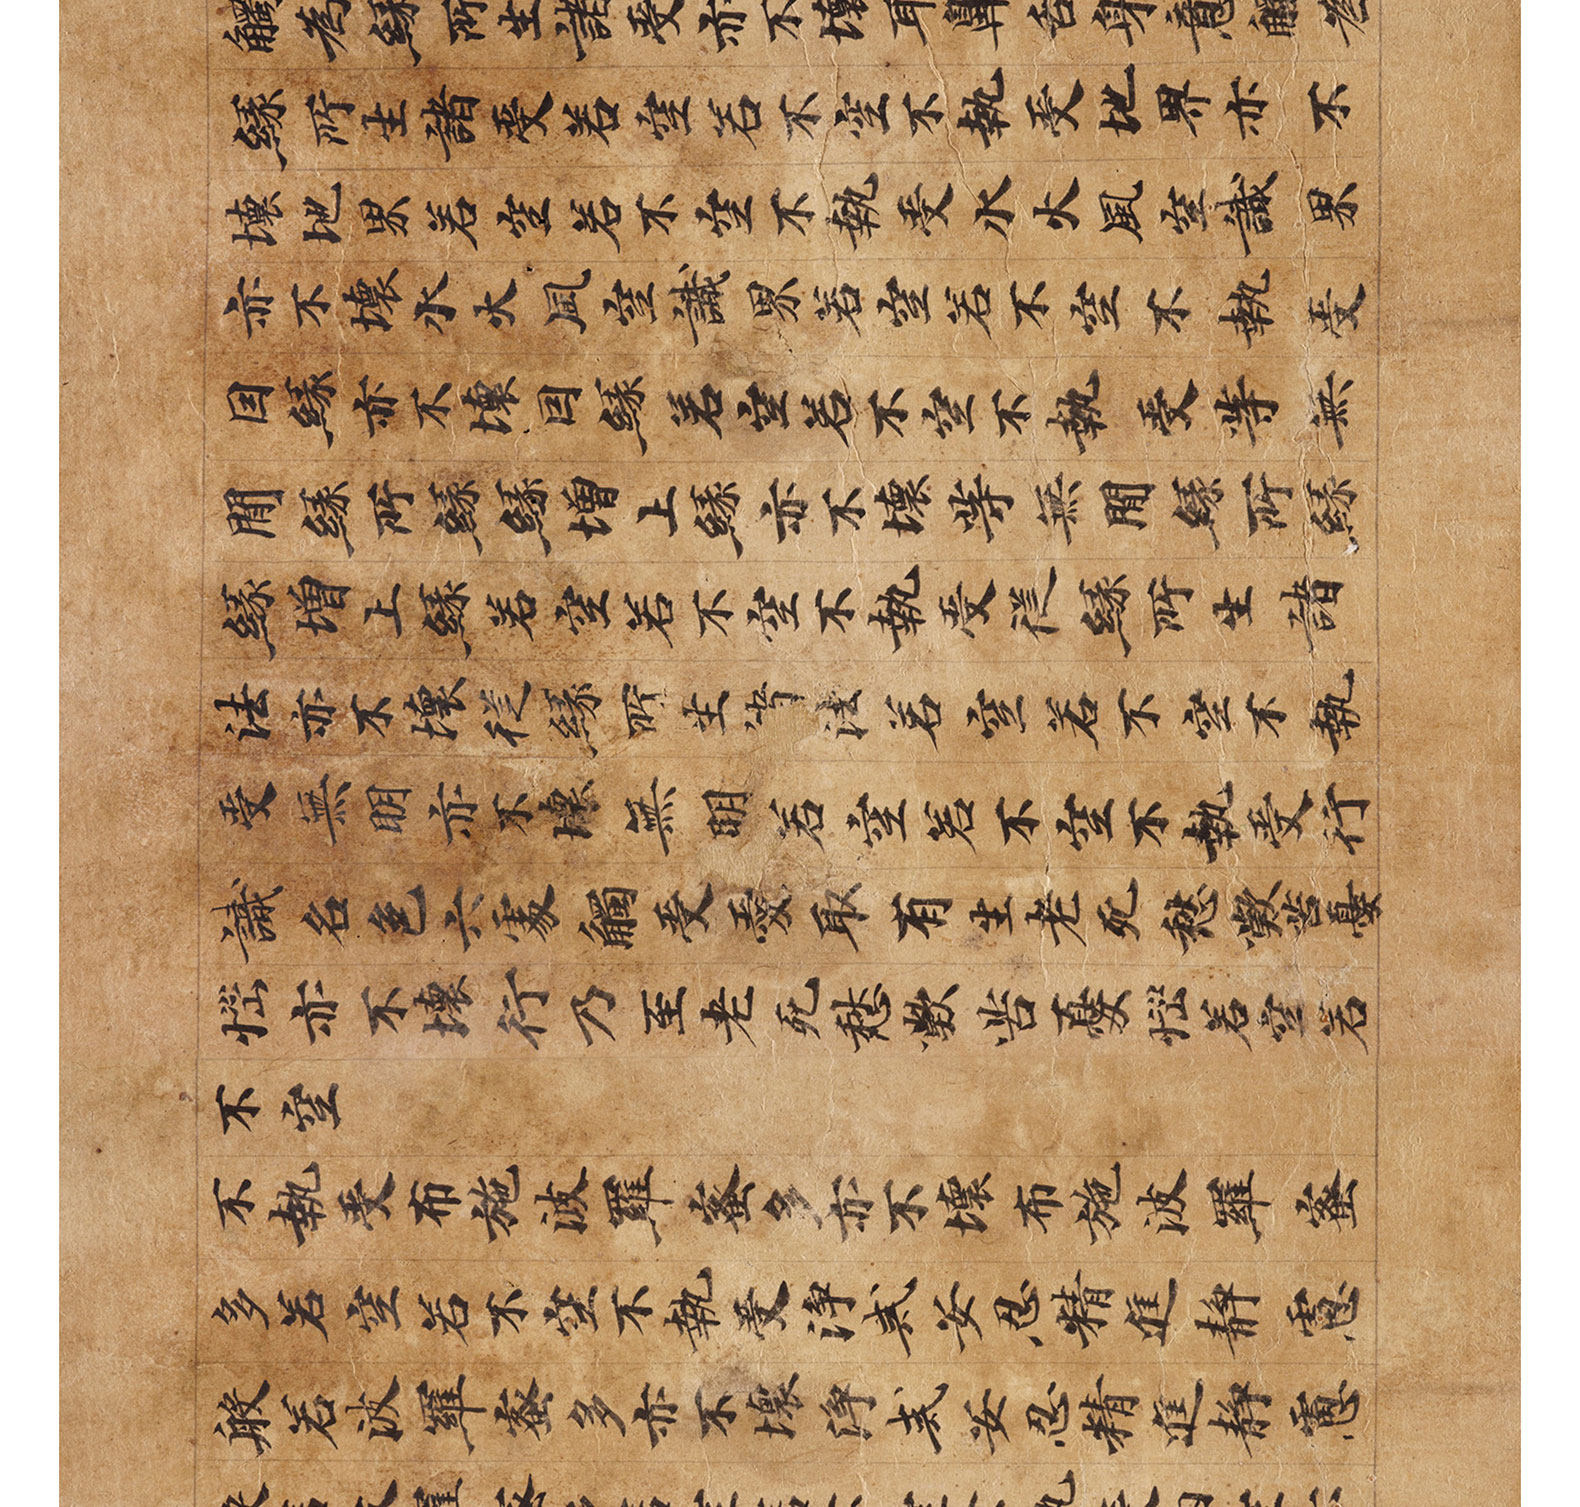 觸為緣所生諸受亦不壞耳鼻舌身意觸為
緣所生諸受若空若不空不執受地界亦不
壞地界若空若不空不執受水火風空識界
亦不壞水火風空識界若空若不空不執受
因緣亦不壞因緣若空若不空不執受等無
間緣所緣緣增上緣亦不壞等無間緣所緣
緣增上緣若空若不空不執受從緣所生諸
法亦不壞從緣所生諸法若空若不空不執
受無明亦不壞無明若空若不空不執受行
識名色六處觸受愛取有生老死愁歎苦憂
惱亦不壞行乃至老死愁歎苦憂惱若空若
不空
不執受布施波羅蜜多亦不壞布施波羅蜜
多若空若不空不執受淨戒安忍精進靜慮
般若波羅蜜多亦不壞淨戒安忍精進靜慮